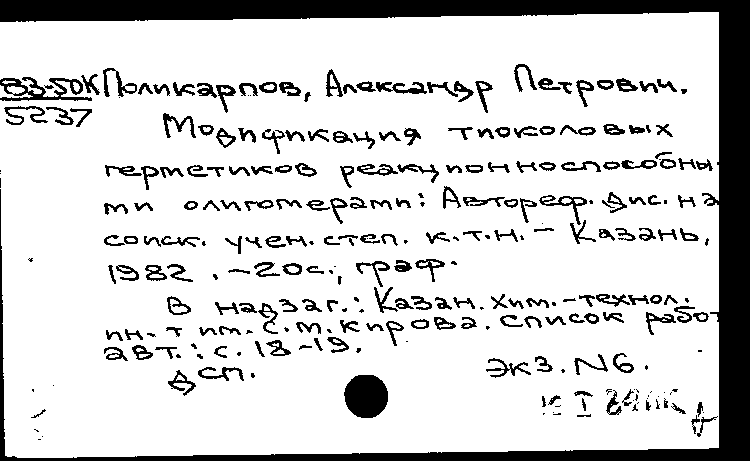 83-50К Поликарпов, Александр Петрович.
5237
Модификация тиоколовых
герметиков реакционноспособны-
ми олигомерами: Автореф. дис. на
соиск. учен. степ. к.т.н. – Казань,
1982. – 20с., граф.
В надзаг.: Казан. хим.-технол.
ин-т им. С.М. Кирова. Список работ
авт.: с. 18-19.
ДСП. Экз. N6.